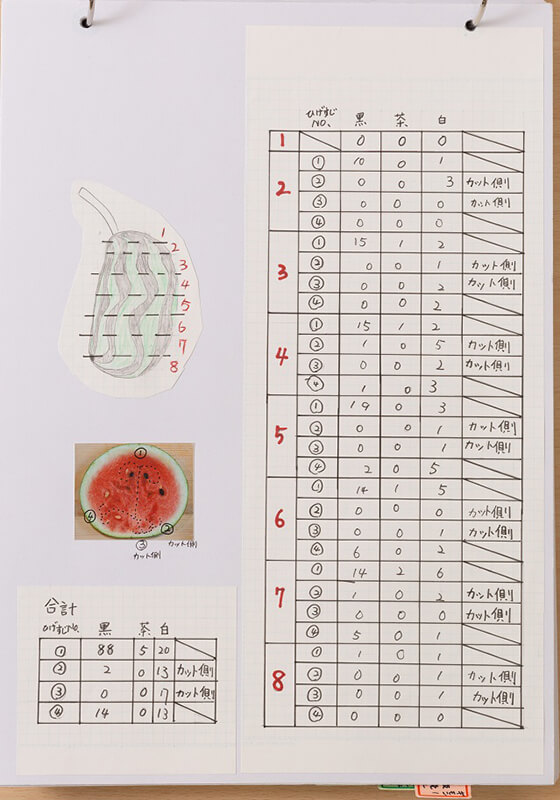 ひげすじNO. 黒 茶 白
1 0 0 0
2
① 10 0 1
② 0 0 3 カット側
③ 0 0 0 カット側
④ 0 0 0
3
① 15 1 2
② 0 0 1 カット側
③ 0 0 2 カット側
④ 0 0 2
4
① 15 1 2
② 1 0 5 カット側
③ 0 0 2 カット側
④ 1 0 3
5
① 19 0 3
② 0 0 1 カット側
③ 0 0 1 カット側
④ 2 0 5
6
① 14 1 5
② 0 0 0 カット側
③ 0 0 1 カット側
④ 6 0 2
7
① 14 2 6
② 1 0 2 カット側
③ 0 0 0 カット側
④ 5 0 1
8
① 1 0 1
② 0 0 1 カット側
③ 0 0 1 カット側
④ 0 0 0
1
2
3
4
5
6
7
8
①
④ ②
③ カット側
カット側
合計
ひげすじNO. 黒 茶 白
① 88 5 20
② 2 0 13 カット側
③ 0 0 7 カット側
④ 14 0 13